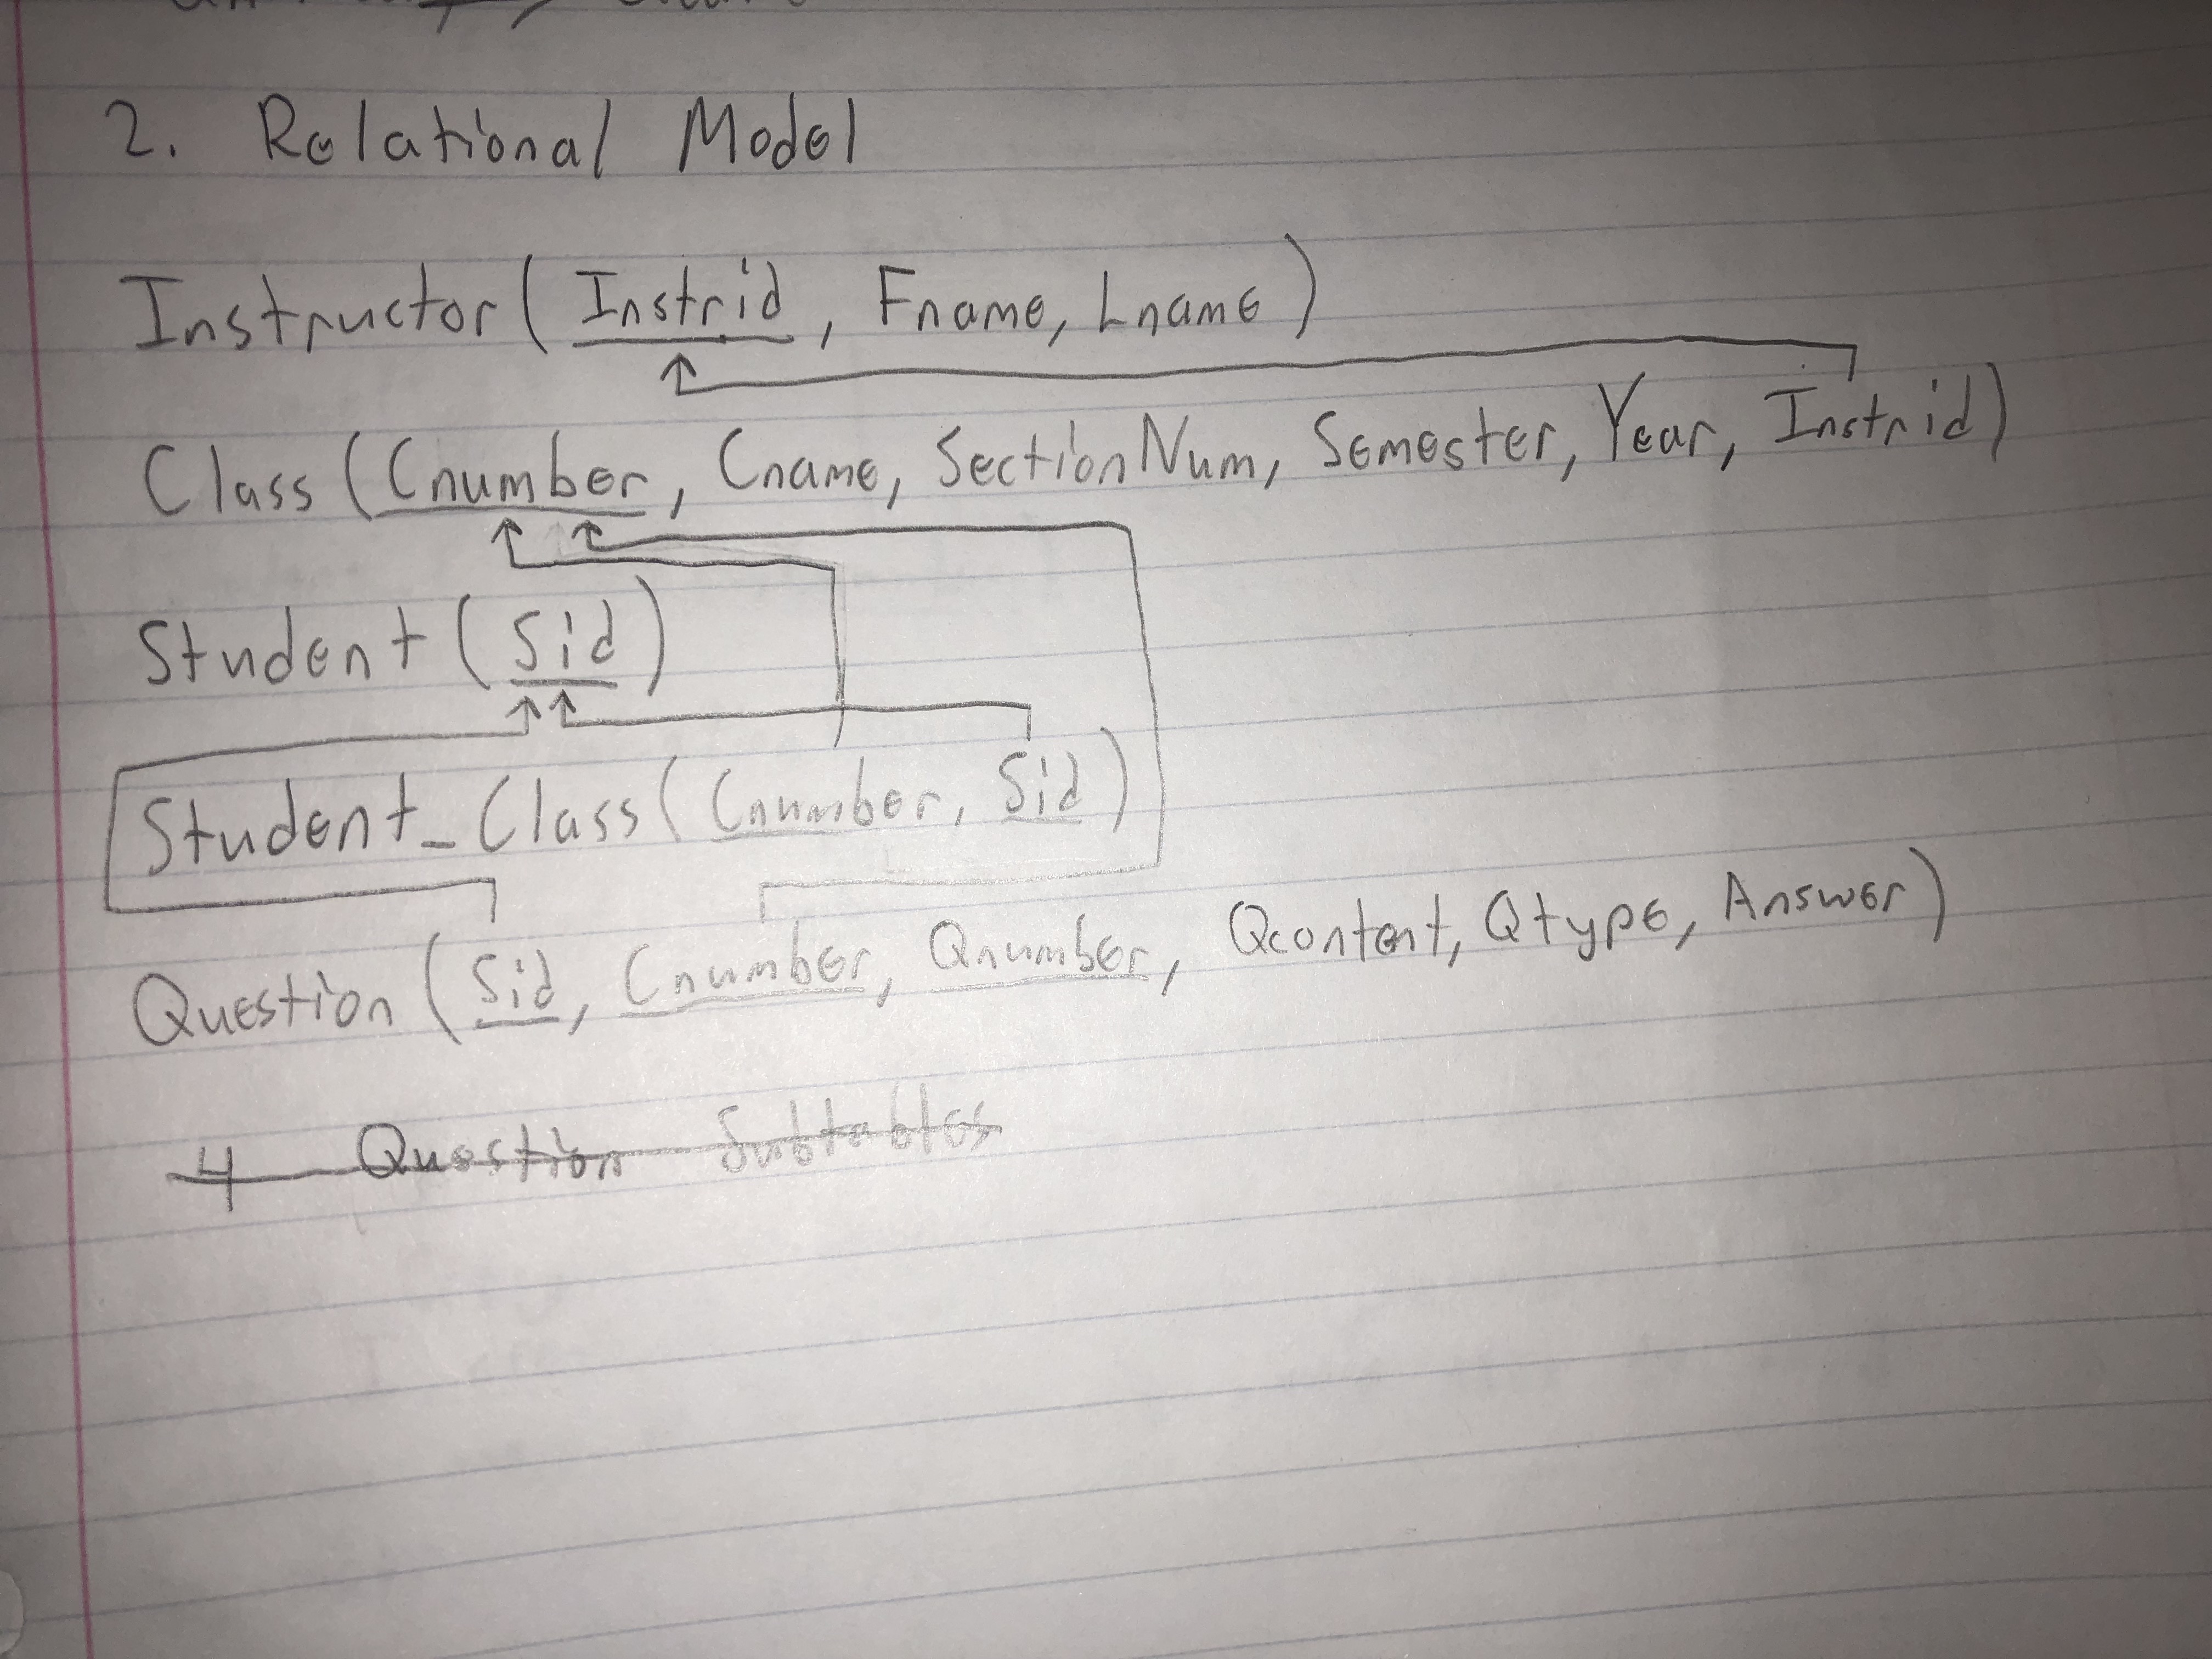 2. Relational Model
Instructor (Instrid, Fname, Lname)
Class (Cnumber, Cname, SectionNum, Semester, Year, Instrid)
Student (Sid)
Student_Class (Cnumber, Sid)
Question (Sid, Cnumber, Qnumber, Qcontent, Qtype, Answer)
4 Question Subtables